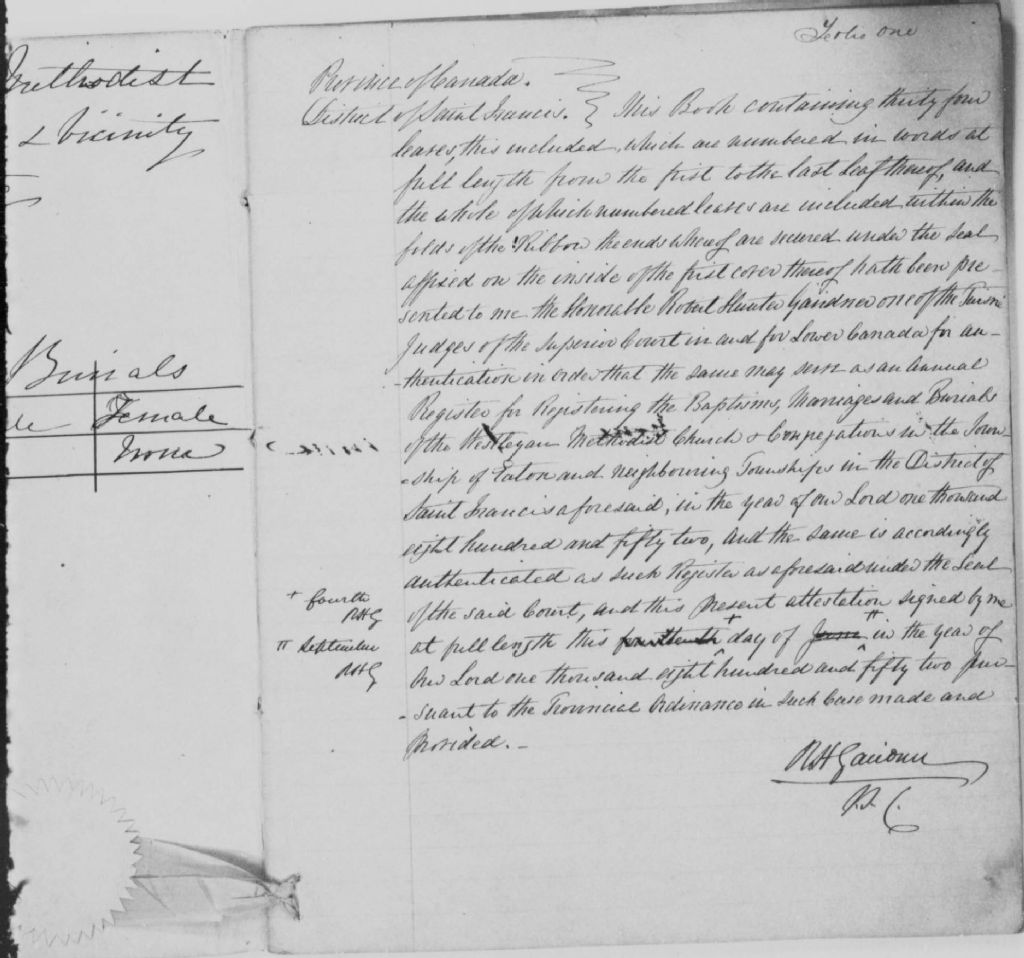 Methodist
& Vicinity
Burials
le Female
None
Folio One
Province of Canada.
District of Saint Francis. } This Book containing thirty four
leaves, this included, which are numbered in words at
full length from the first to the last leaf thereof, and
the whole of which numbered leaves are included within the
folds of the Ribbon the ends whereof are secured under the Seal
affixed on the inside of the first cover thereof hath been pre-
sented to me the Honorable Robert Hunter Gairdner one of the
Judges of the Superior Court in and for Lower Canada for au-
-thentication in order that the same may serve as an Annual
Register for Registering the Baptisms, Marriages and Burials
of the Wesleyan Methodist Church & Congregations in the Town-
-ship of Eaton and neighbouring Townships in the District of
Saint Francis aforesaid, in the year of our Lord one thousand
eight hundred and fifty two, and the same is accordingly
authenticated as such Register as aforesaid under the Seal
+ fourth
of the said Court, and this present attestation signed by me
RHG
at full length this fourteenth + day of June " in the year of
" September
our Lord one thousand eight hundred and fifty two pur-
RHG
-suant to the Provincial Ordinance in such Case made and
provided. -
RH Gairdner
J.S.C.